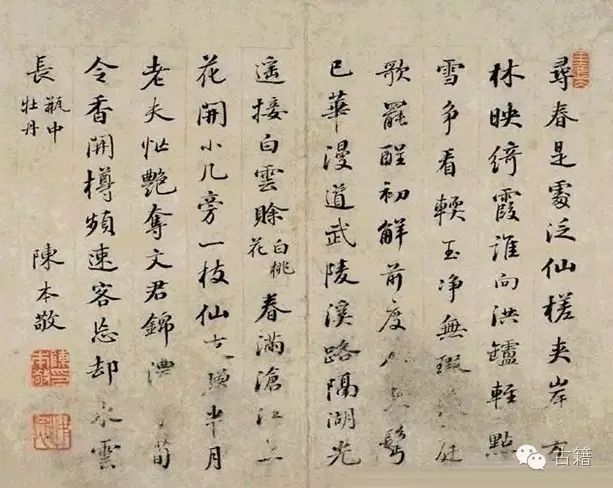 尋春是處泛仙槎夾岸方
林映綺霞誰向洪鑪輕點
雪爭看輭玉净無瑕庭
歌罷酲初解前度鬢
已華漫道武陵溪路隔湖光
遥接白雲賒白桃花春滿滄江上
花開小几旁一枝仙半月
老夫恠艷奪文君錦荀
令香開樽頻速客忘却雲
長瓶中牡丹
陳本敬
古籍